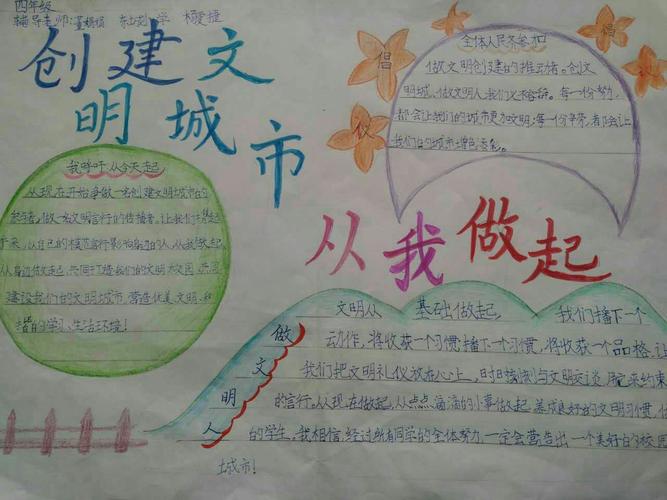 四年级
辅导老师:董娟娟 东城小学 杨爱捷
创建文
明城市
从我做起
倡
仪
倡
全体人民齐参加
做文明创建的推动者。创文
明城,做文明人,我们义不容辞。每一份努力,
都会让我们的城市更加文明;每一个
我们的城市增色添彩。
我呼吁:从今天起
从现在开始争做一名创建文明城市的
参与者,做一名文明言行的传播者。让我们
来,以自己的模范言行影响身边的人,从我做起,
从身边做起,共同打造我们的文明校园,共同
建设我们的文明城市,营造优美、文明、和
谐的学习、生活环境!
做文明人
文明从 基础做起, 我们播下一个
动作,将收获一个习惯;播下一个习惯,将收获一个品格,让
我们把文明礼仪放在心上,时时刻刻与文明交谈,用它来约束
的言行。从现在做起,从点点滴滴的小事做起,养成良好的文明习惯,做
的学生,我相信,经过所有同学的全体努力,一定会营造出一个美好的校园
城市!